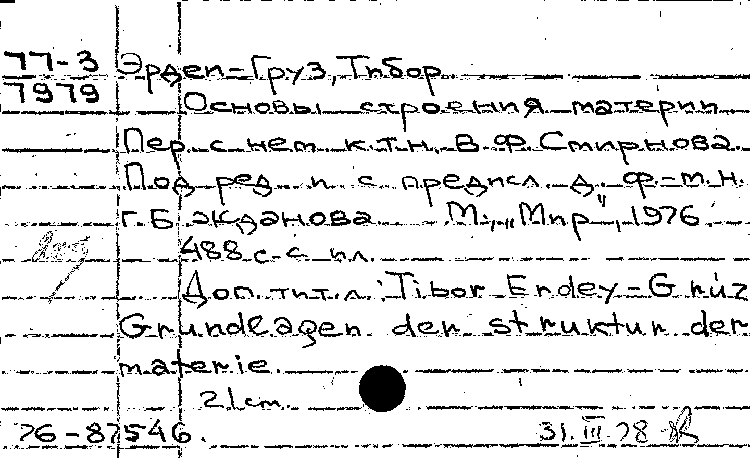 77-3 Эрдеи-Груз, Тибор.
7979
Основы строения материи
Пер. с нем. к.т.н. В.Ф. Смирнова.
Под ред. и с предисл. д. ф.-м.н.
Г.Б. Жданова. М., "Мир", 1976.
488 с. с ил.
Доп. тит. л.: Tibor Erdey-Grúz
Grundlagen der struktur der
materie.
21cm.
76-87546. 31.III.78